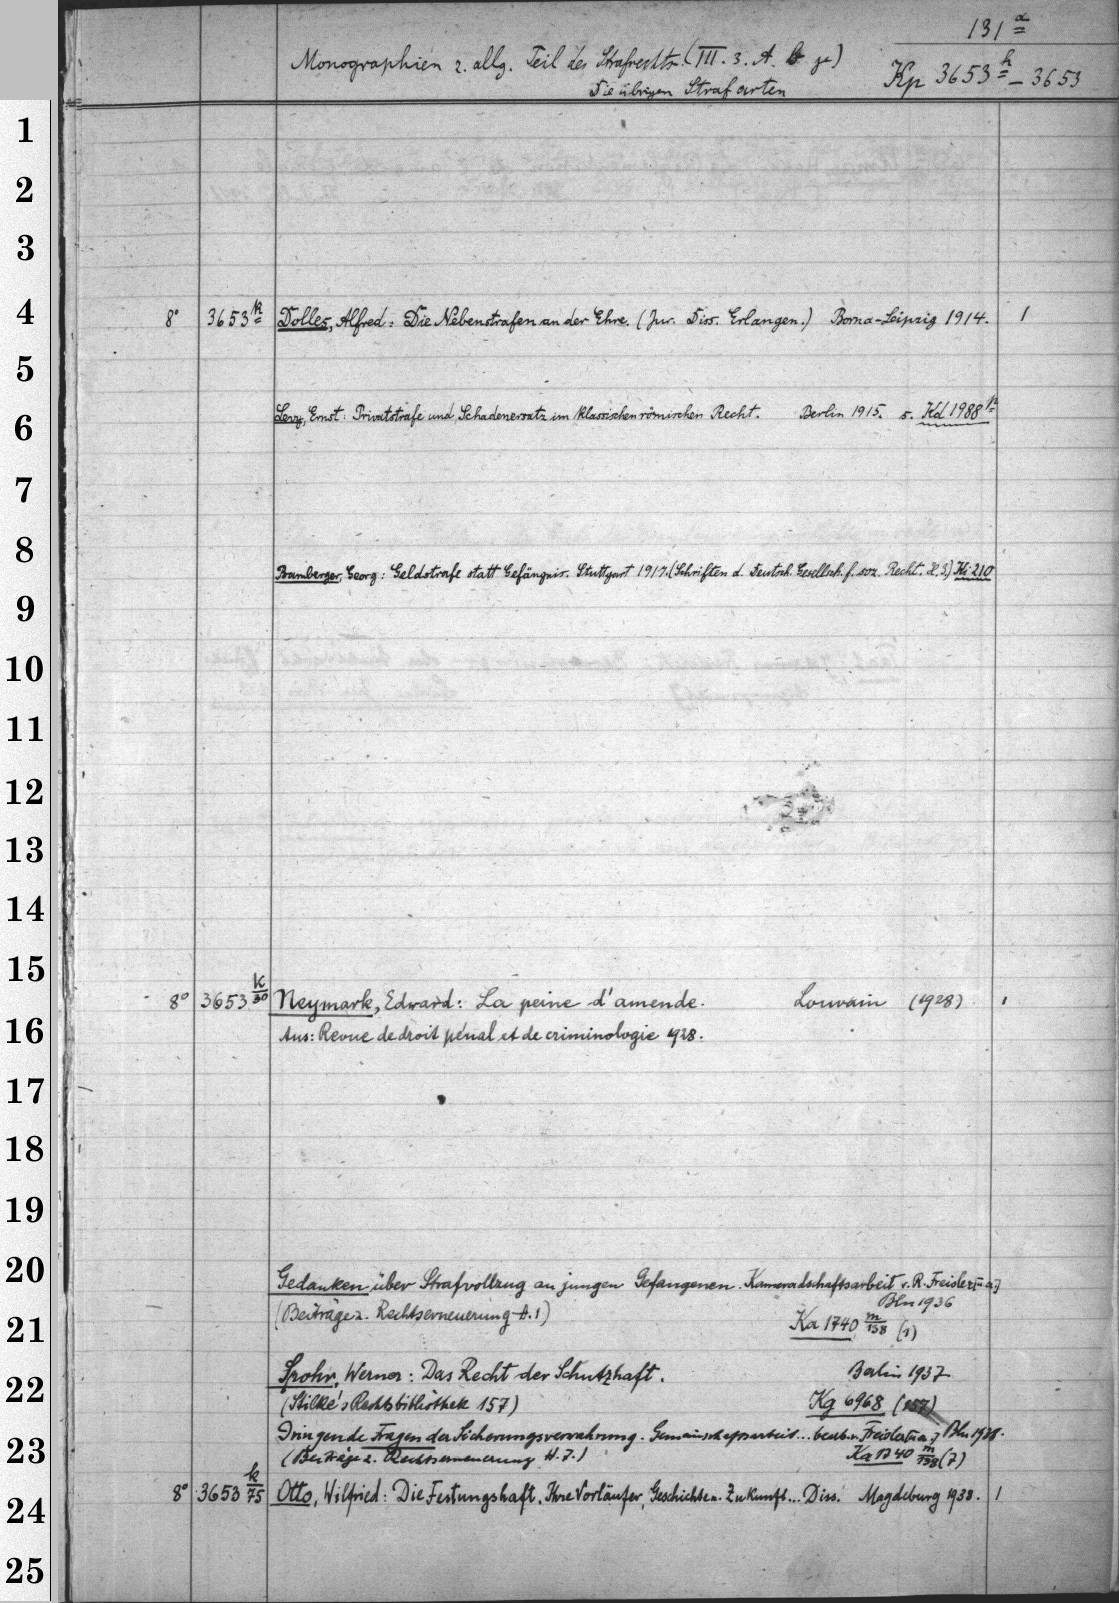 131 a
Monographien z. allg. Teil des Strafrechts. (III. 3. A. b γ)
Kp 3653 h – 3653
Die übrigen Strafarten
1
2
3
4
8° 3653 k Dolles, Alfred: Die Nebenstrafen an der Ehre. (Jur. Diss. Erlangen.) Borna-Leipzig 1914. 1
5
Levy, Ernst: Privatstrafe und Schadenersatz im klassischen römischen Recht. Berlin 1915. s. Kd 1988
6
7
8
Bamberger, Georg: Geldstrafe statt Gefängnis. Stuttgart 1917. (Schriften d. Deutsch. Gesellsch. f. soz. Recht. H. 3) Ki 210
9
10
11
12
13
14
15
8° 3653 k/30 Neymark, Edward: La peine d'amende. Louvain (1928) 1
16
Aus: Revue de droit pénal et de criminologie 1928.
17
18
19
20
Gedanken über Strafvollzug an jungen Gefangenen. Kameradschaftsarbeit v. R. Freisler [u. a.]
Bln 1936
(Beiträge z. Rechtserneuerung H. 1)
21
Ka 1740 m/158 (1)
Spohr, Werner: Das Recht der Schutzhaft. Berlin 1937
22
(Stilke's Rechtsbibliothek 157) Kg 6968 (157)
Dringende Fragen der Sicherungsverwahrung. Gemeinschaftsarbeit... bearb. v. Freisler [u. a.] Bln 1938.
23
(Beiträge z. Rechtserneuerung H. 7.) Ka 1740 m/158 (7)
24
8° 3653 k/75 Otto, Wilfried: Die Festungshaft. Ihre Vorläufer, Geschichte u. Zukunft... Diss. Magdeburg 1938. 1
25